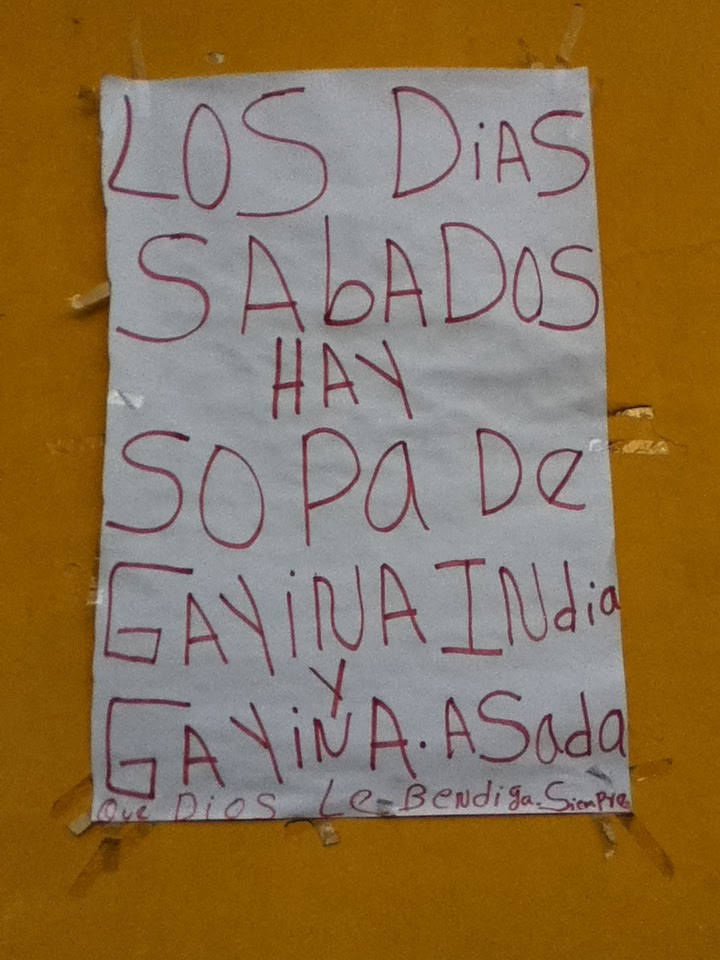 LOS DiAS
SAbADOS
HAY
SOPa De
GAYiNA INdia
Y
GAYiNA. ASada
Que DiOS Le-BeNdiga-SiemPre